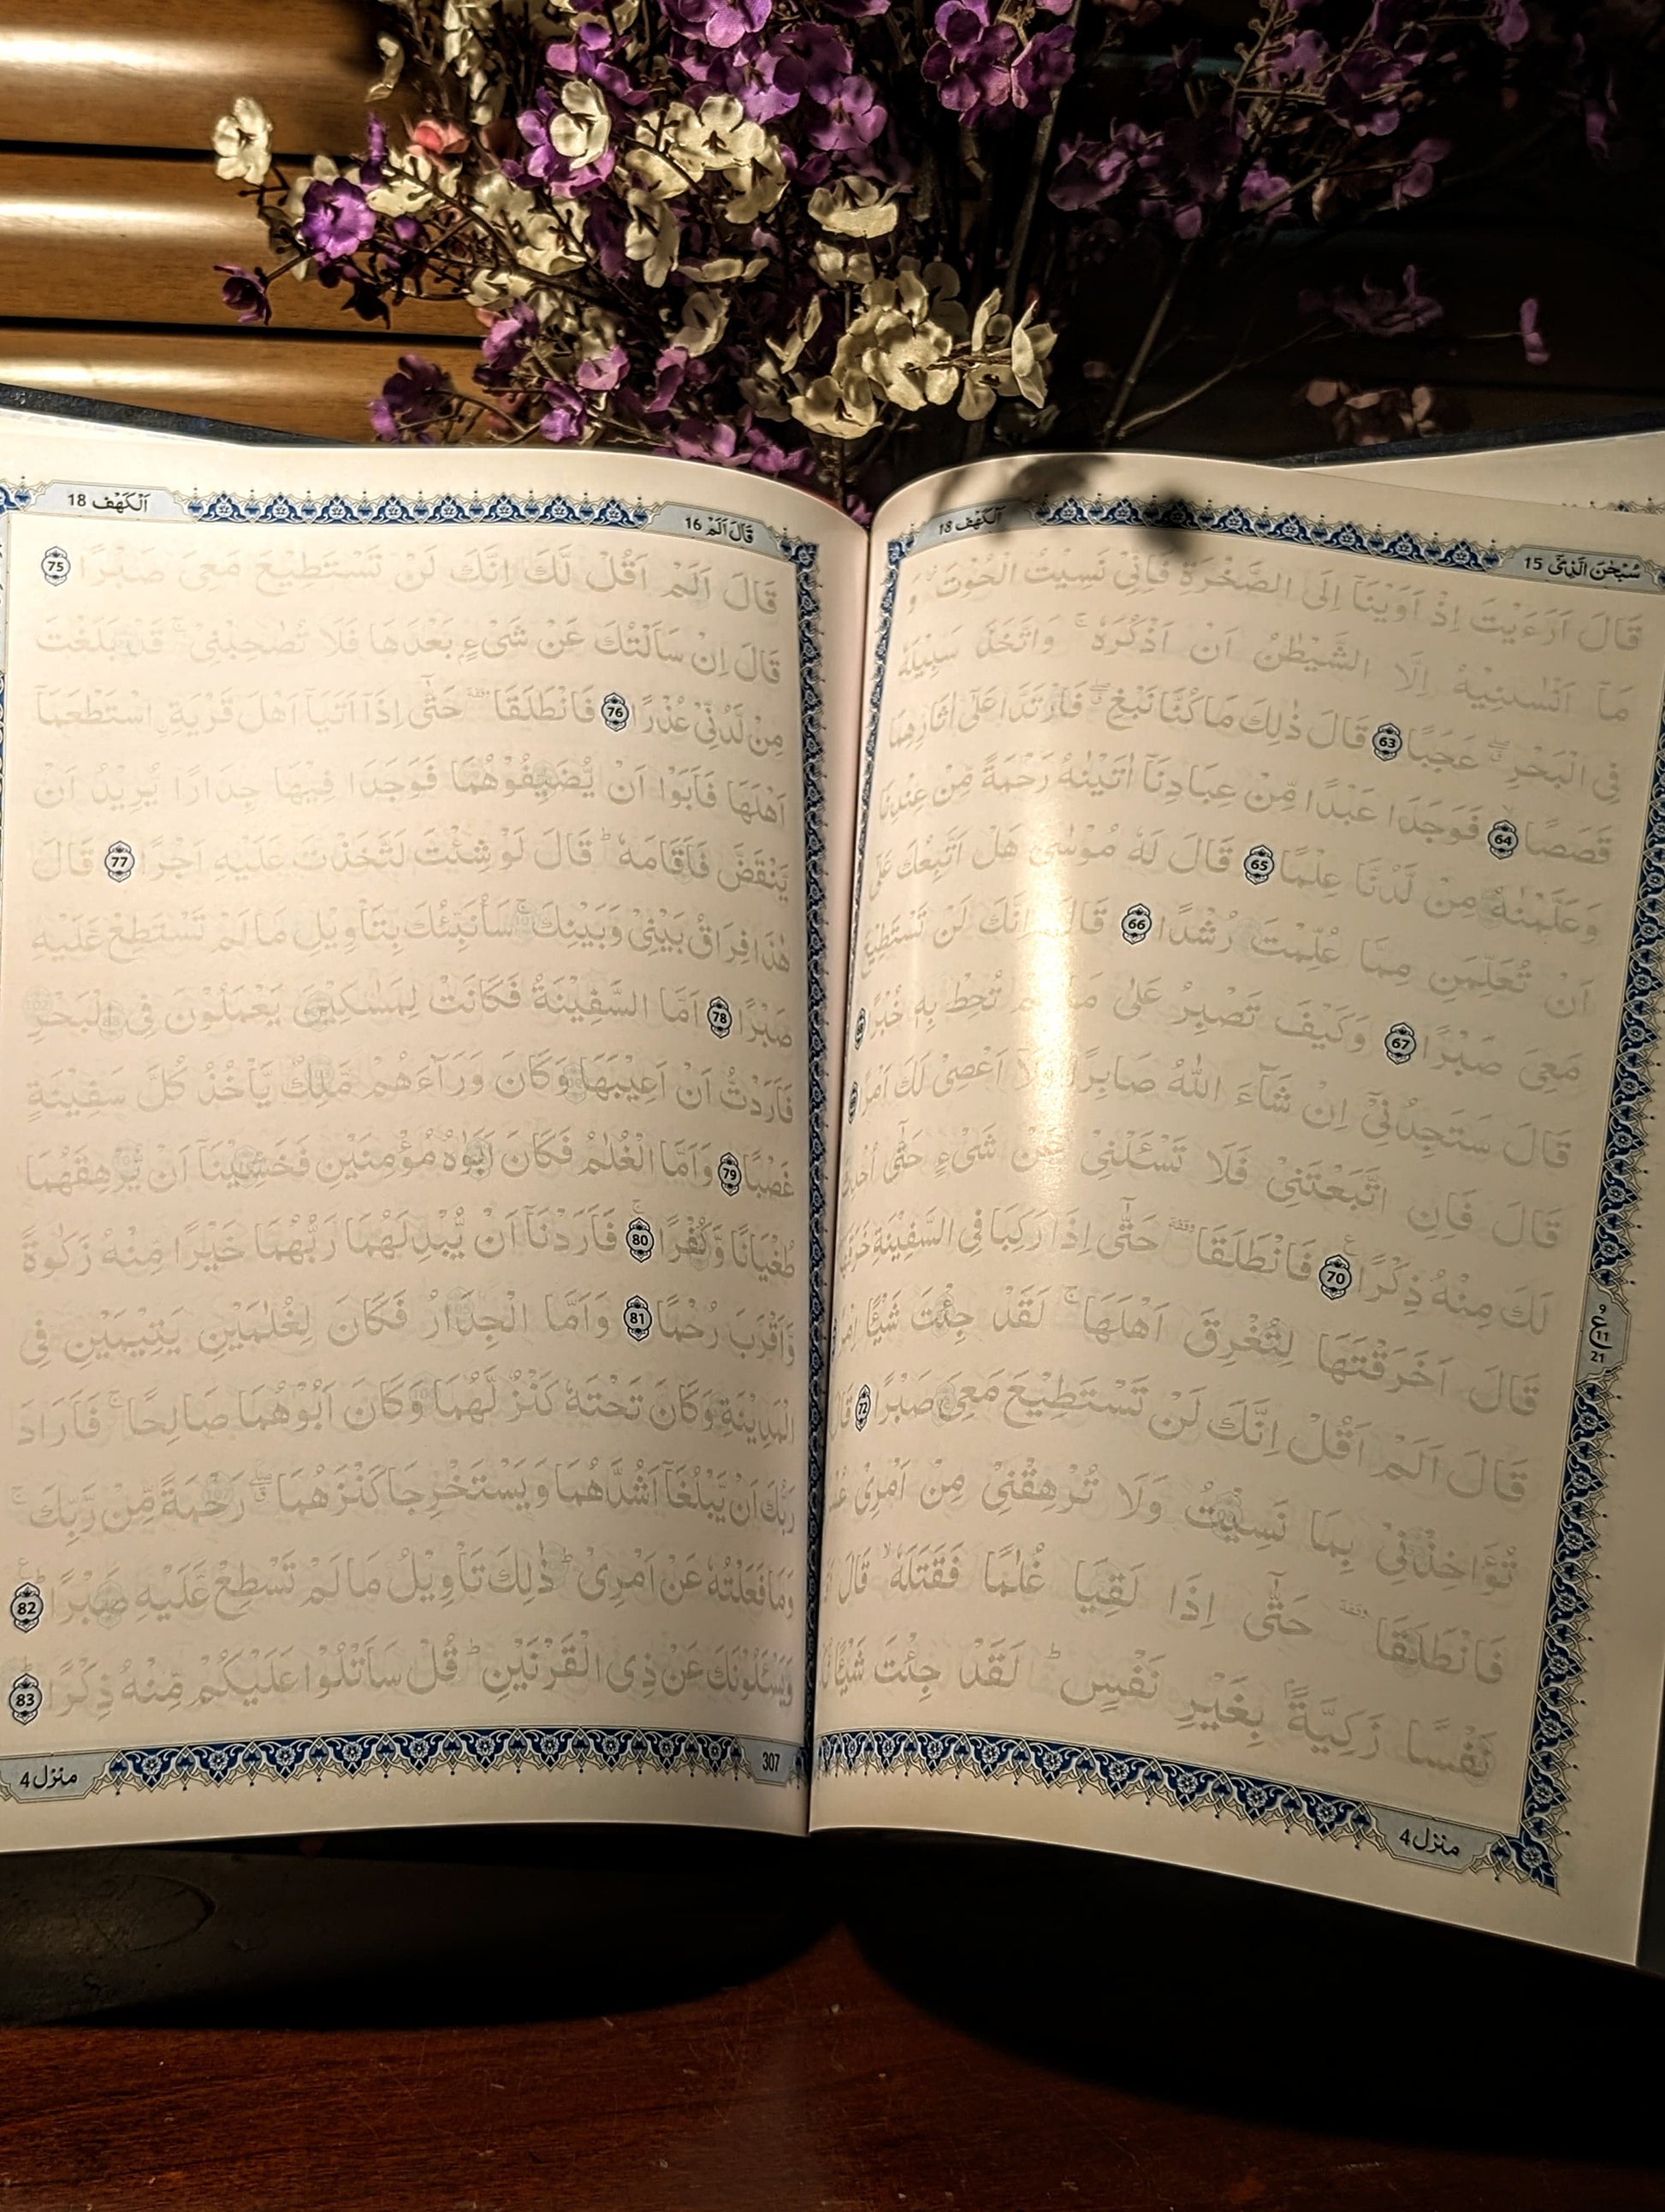 سُبْحٰنَ الَّذِیْۤ 15
اَلْكَهْف 18
قَالَ اَرَءَیْتَ اِذْ اَوَیْنَاۤ اِلَی الصَّخْرَةِ فَاِنِّیْ نَسِیْتُ الْحُوْتَ ؗ وَ
مَاۤ اَنْسٰىنِیْهُ اِلَّا الشَّیْطٰنُ اَنْ اَذْكُرَهٗ ۚ وَاتَّخَذَ سَبِیْلَهٗ
فِی الْبَحْرِ ۖۗ عَجَبًا 63 قَالَ ذٰلِكَ مَا كُنَّا نَبْغِ ۖۗ فَارْتَدَّا عَلٰۤی اٰثَارِهِمَا
قَصَصًا 64 فَوَجَدَا عَبْدًا مِّنْ عِبَادِنَاۤ اٰتَیْنٰهُ رَحْمَةً مِّنْ عِنْدِنَا
وَعَلَّمْنٰهُ مِنْ لَّدُنَّا عِلْمًا 65 قَالَ لَهٗ مُوْسٰی هَلْ اَتَّبِعُكَ عَلٰۤی
اَنْ تُعَلِّمَنِ مِمَّا عُلِّمْتَ رُشْدًا 66 قَالَ اِنَّكَ لَنْ تَسْتَطِیْعَ
مَعِیَ صَبْرًا 67 وَكَیْفَ تَصْبِرُ عَلٰی مَا لَمْ تُحِطْ بِهٖ خُبْرًا
قَالَ سَتَجِدُنِیْۤ اِنْ شَآءَ اللّٰهُ صَابِرًا وَّلَاۤ اَعْصِیْ لَكَ اَمْرًا
قَالَ فَاِنِ اتَّبَعْتَنِیْ فَلَا تَسْـَٔلْنِیْ عَنْ شَیْءٍ حَتّٰۤی اُحْدِثَ
لَكَ مِنْهُ ذِكْرًا 70 فَانْطَلَقَا ۥ حَتّٰۤی اِذَا رَكِبَا فِی السَّفِیْنَةِ خَرَقَهَا
قَالَ اَخَرَقْتَهَا لِتُغْرِقَ اَهْلَهَا ۚ لَقَدْ جِئْتَ شَیْـًٔا اِمْرًا
قَالَ اَلَمْ اَقُلْ اِنَّكَ لَنْ تَسْتَطِیْعَ مَعِیَ صَبْرًا 72 قَالَ
تُؤَاخِذْنِیْ بِمَا نَسِیْتُ وَلَا تُرْهِقْنِیْ مِنْ اَمْرِیْ
فَانْطَلَقَا ۥ حَتّٰۤی اِذَا لَقِیَا غُلٰمًا فَقَتَلَهٗ ۙ قَالَ
نَفْسًا زَكِیَّةًۢ بِغَیْرِ نَفْسٍ ؕ لَقَدْ جِئْتَ شَیْـًٔا
9
ع
11
21
منزل 4
قَالَ اَلَمْ 16
اَلْكَهْف 18
قَالَ اَلَمْ اَقُلْ لَّكَ اِنَّكَ لَنْ تَسْتَطِیْعَ مَعِیَ صَبْرًا 75
قَالَ اِنْ سَاَلْتُكَ عَنْ شَیْءٍۭ بَعْدَهَا فَلَا تُصٰحِبْنِیْ ۚ قَدْ بَلَغْتَ
مِنْ لَّدُنِّیْ عُذْرًا 76 فَانْطَلَقَا ۥ حَتّٰۤی اِذَاۤ اَتَیَاۤ اَهْلَ قَرْیَةِ ِ۟اسْتَطْعَمَاۤ
اَهْلَهَا فَاَبَوْا اَنْ یُّضَیِّفُوْهُمَا فَوَجَدَا فِیْهَا جِدَارًا یُّرِیْدُ اَنْ
یَّنْقَضَّ فَاَقَامَهٗ ؕ قَالَ لَوْ شِئْتَ لَتَّخَذْتَ عَلَیْهِ اَجْرًا 77 قَالَ
هٰذَا فِرَاقُ بَیْنِیْ وَبَیْنِكَ ۚ سَاُنَبِّئُكَ بِتَاْوِیْلِ مَا لَمْ تَسْتَطِعْ عَّلَیْهِ
صَبْرًا 78 اَمَّا السَّفِیْنَةُ فَكَانَتْ لِمَسٰكِیْنَ یَعْمَلُوْنَ فِی الْبَحْرِ
فَاَرَدْتُّ اَنْ اَعِیْبَهَا وَكَانَ وَرَآءَهُمْ مَّلِكٌ یَّاْخُذُ كُلَّ سَفِیْنَةٍ
غَصْبًا 79 وَاَمَّا الْغُلٰمُ فَكَانَ اَبَوٰهُ مُؤْمِنَیْنِ فَخَشِیْنَاۤ اَنْ یُّرْهِقَهُمَا
طُغْیَانًا وَّكُفْرًا 80 فَاَرَدْنَاۤ اَنْ یُّبْدِلَهُمَا رَبُّهُمَا خَیْرًا مِّنْهُ زَكٰوةً
وَّاَقْرَبَ رُحْمًا 81 وَاَمَّا الْجِدَارُ فَكَانَ لِغُلٰمَیْنِ یَتِیْمَیْنِ فِی
الْمَدِیْنَةِ وَكَانَ تَحْتَهٗ كَنْزٌ لَّهُمَا وَكَانَ اَبُوْهُمَا صَالِحًا ۚ فَاَرَادَ
رَبُّكَ اَنْ یَّبْلُغَاۤ اَشُدَّهُمَا وَیَسْتَخْرِجَا كَنْزَهُمَا ۖۗ رَحْمَةً مِّنْ رَّبِّكَ ۚ
وَمَا فَعَلْتُهٗ عَنْ اَمْرِیْ ؕ ذٰلِكَ تَاْوِیْلُ مَا لَمْ تَسْطِعْ عَّلَیْهِ صَبْرًا 82
وَیَسْـَٔلُوْنَكَ عَنْ ذِی الْقَرْنَیْنِ ؕ قُلْ سَاَتْلُوْا عَلَیْكُمْ مِّنْهُ ذِكْرًا 83
307
منزل 4